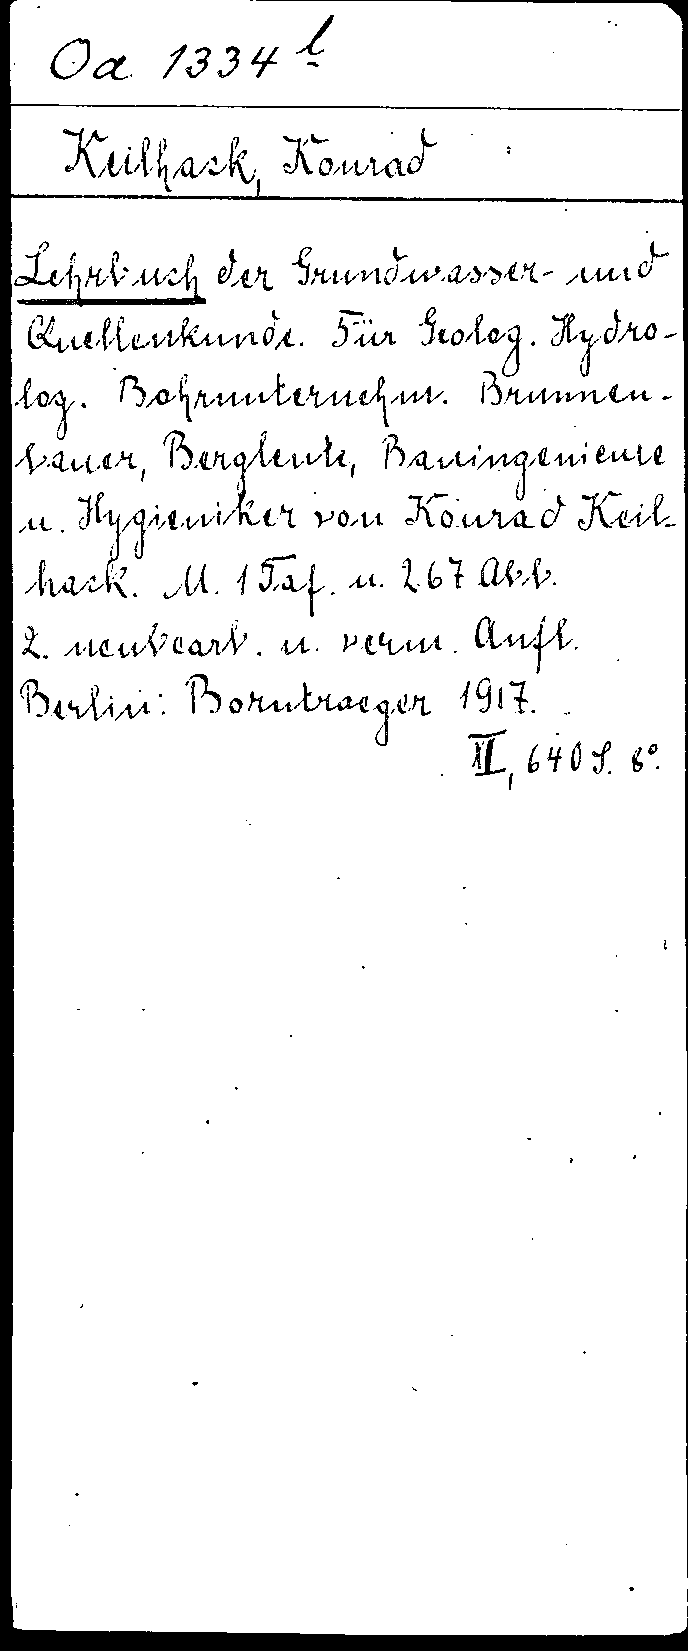 Oa 1334 l
Keilhack, Konrad
Lehrbuch der Grundwasser- und
Quellenkunde. Für Geolog. Hydro-
log. Bohrunternehm. Brunnen-
bauer, Bergleute, Bauingenieure
u. Hygieniker von Konrad Keil-
hack. M. 1 Taf. u. 267 Abb.
2. neubearb. u. verm. Aufl.
Berlin: Borntraeger 1917.
640 S. 8°.